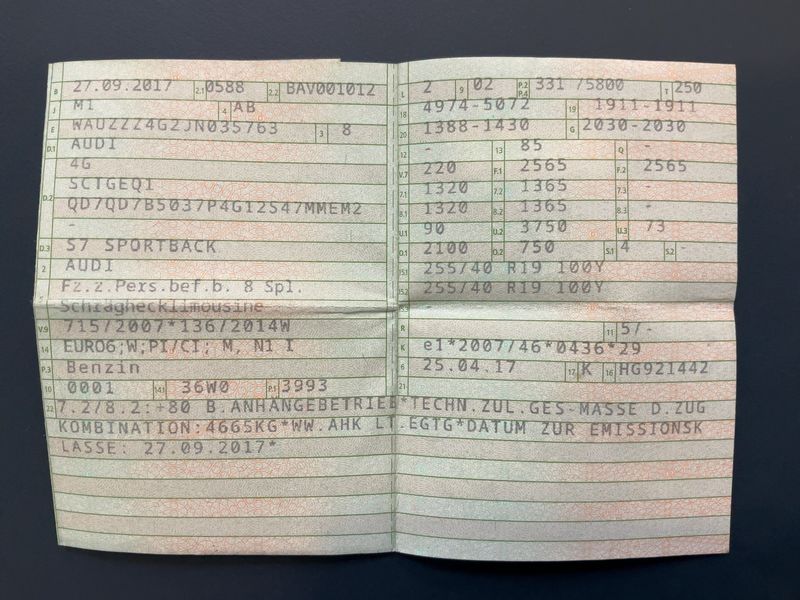 B 27.09.2017 2.1 0588 2.2 BAV001012
J M1 4 AB
E WAUZZZ4G2JN035763 3 8
D.1 AUDI
4G
D.2 SCTGEQ1
QD7QD7B5037P4G12S47MMEM2
-
D.3 S7 SPORTBACK
2 AUDI
Fz.z.Pers.bef.b. 8 Spl.
Schräghecklimousine
V.9 715/2007*136/2014W
14 EURO6;W;PI/CI; M, N1 I
P.3 Benzin
10 0001 14.1 36W0 P.1 3993
L 2 9 02 P.2 P.4 331 /5800 T 250
18 4974-5072 19 1911-1911
20 1388-1430 G 2030-2030
12 - 13 85 Q -
V.7 220 F.1 2565 F.2 2565
7.1 1320 7.2 1365 7.3 -
8.1 1320 8.2 1365 8.3 -
U.1 90 U.2 3750 U.3 73
O.1 2100 O.2 750 S.1 4 S.2 -
15.1 255/40 R19 100Y
15.2 255/40 R19 100Y
R 11 5/-
K e1*2007/46*0436*29
6 25.04.17 17 K 16 HG921442
21
22 7.2/8.2:+80 B.ANHÄNGEBETRIEB*TECHN.ZUL.GES-MASSE D.ZUG
KOMBINATION:4665KG*WW.AHK LT.EGTG*DATUM ZUR EMISSIONSK
LASSE: 27.09.2017*